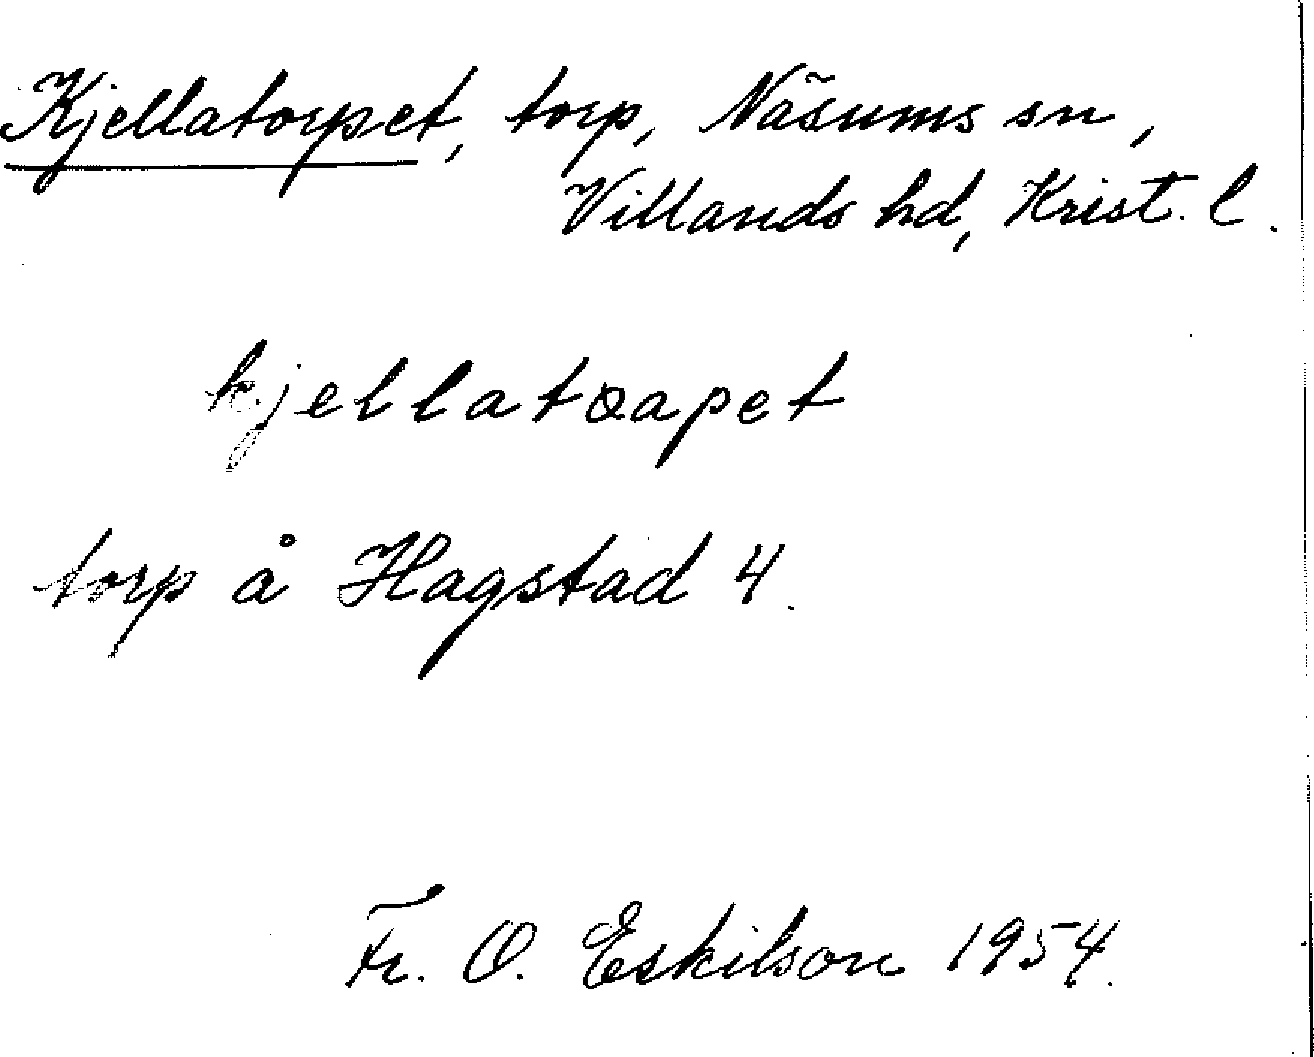 Kjellatorpet, torp, Näsums sn,
Villands hd, Krist. l.
kjellatoapet
torp å Hagstad 4.
Fr. O. Eskilson 1954.